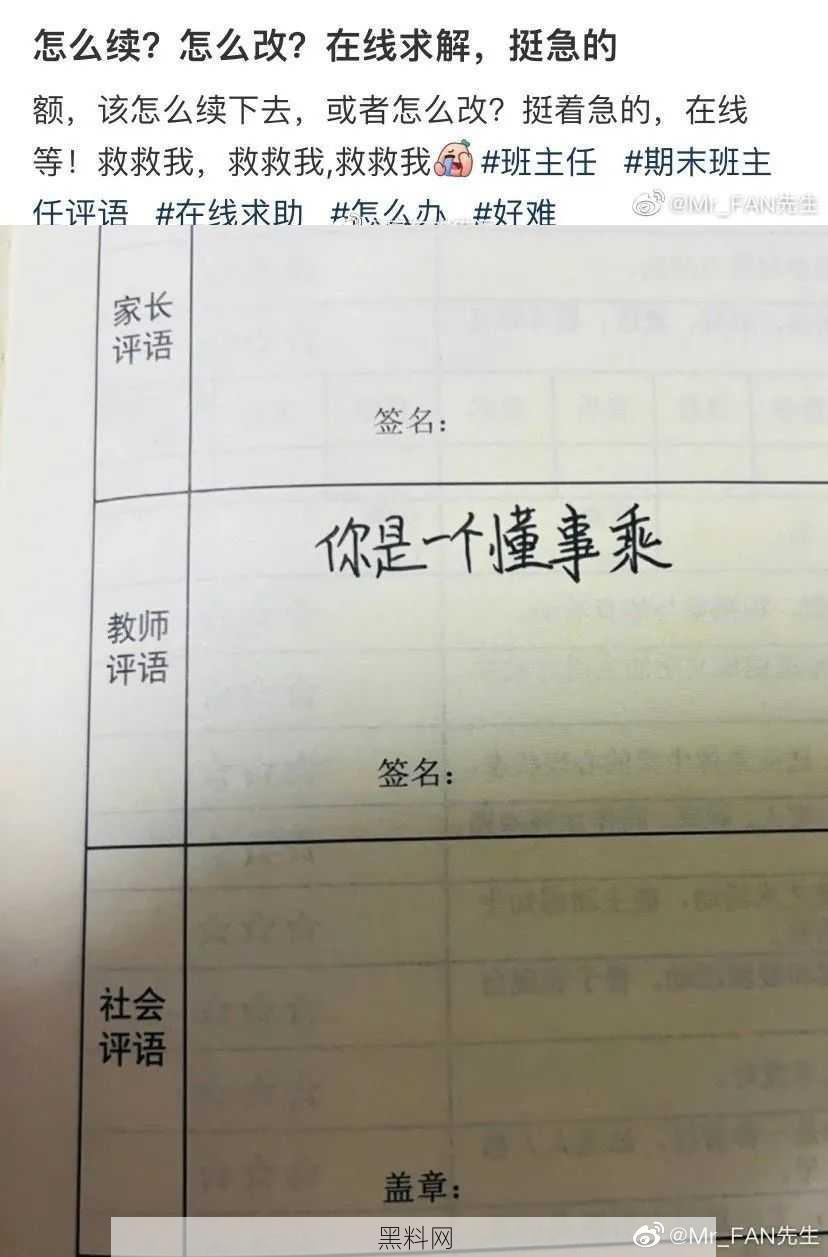 怎么续？怎么改？在线求解，挺急的
额，该怎么续下去，或者怎么改？挺着急的，在线
等！救救我，救救我,救救我 #班主任 #期末班主
任评语 #在线求助 #怎么办 #好难
@Mr_FAN先生
家长
评语
签名：
你是一个懂事乘
教师
评语
签名：
社会
评语
盖章：
黑料网
@Mr_FAN先生